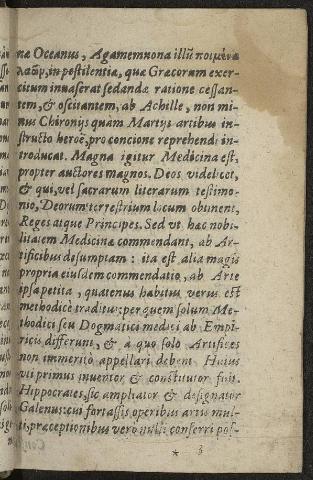 næ Oceanus, Agamemnona illũ ποιμένα
λαῶν, in pestilentia, quæ Græcorum exer-
citum inuaserat sedandæ ratione cessan-
tem, & oscitantem, ab Achille, non mi-
nus Chironijs quàm Martijs artibus in-
structo heroë, pro concione reprehendi in-
troducat. Magna igitur Medicina est,
propter auctores magnos. Deos videlicet,
& qui, vel sacrarum literarum testimo-
nio, Deorum terrestrium locum obtinent,
Reges atque Principes. Sed vt hac nobi-
litatem Medicinæ commendant, ab Ar-
tificibus desumptam: ita est alia magis
propria eiusdem commendatio, ab Arte
ipsa petita, quatenus habitus verus est
methodicè traditus: per quem solum Me-
thodici seu Dogmatici medici ab Empi-
ricis differunt, & à quo solo Artifices
non immeritò appellari debent. Huius
vti primus inuentor & constitutor fuit
Hippocrates, sic ampliator & designator
Galenus: cui fortassis operibus artis mul-
ti, præceptionibus verò nulli conferri pos-
* 3